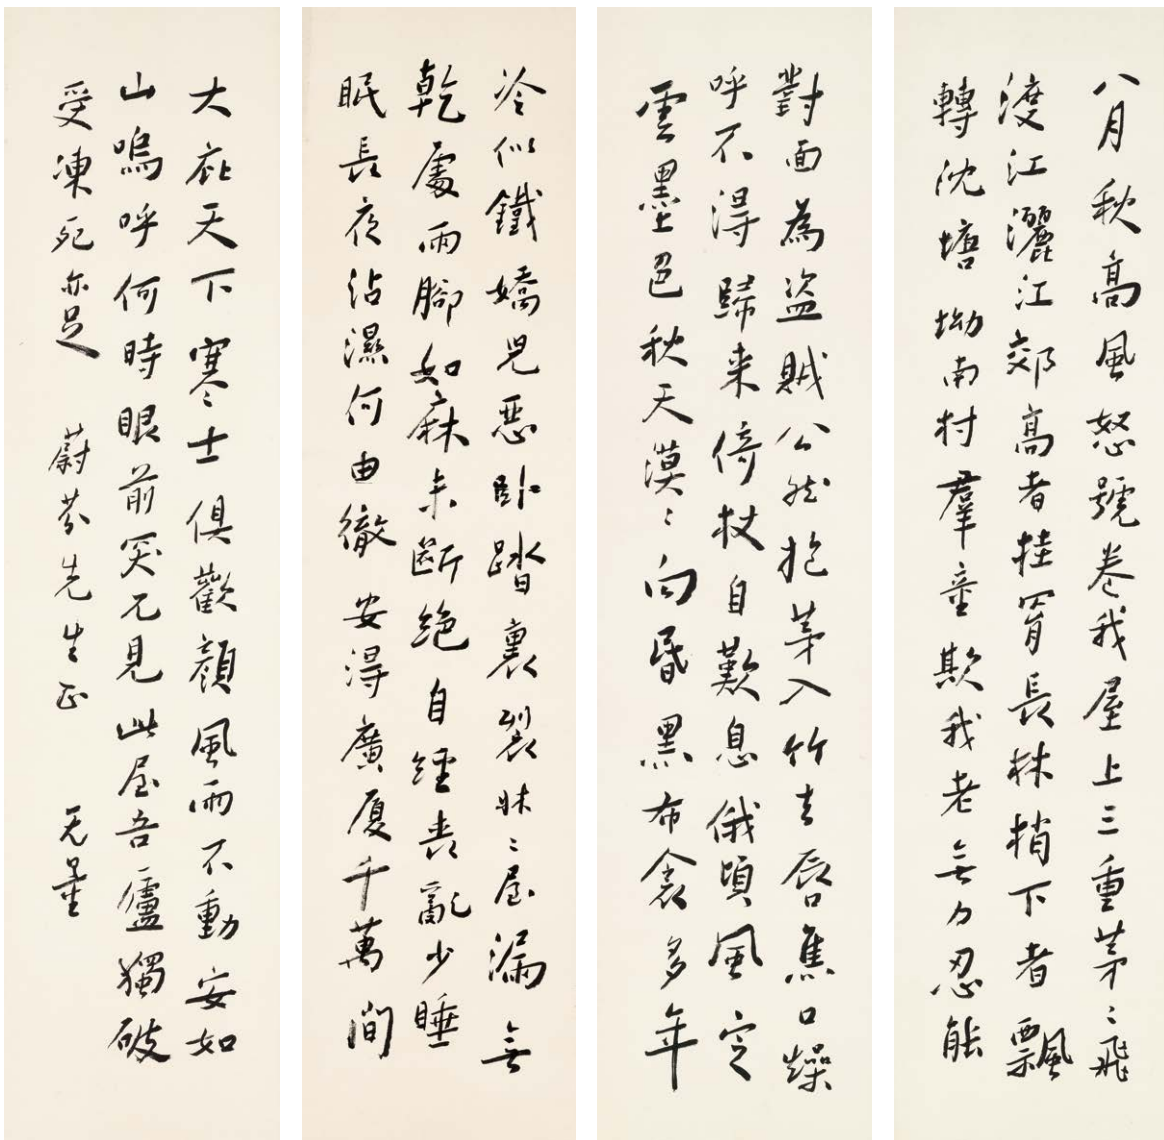 八月秋高風怒號卷我屋上三重茅〻飛
渡江灑江郊高者挂罥長林梢下者飄
轉沈塘坳南村羣童欺我老無力忍能
對面為盜賊公然抱茅入竹去唇焦口燥
呼不得歸来倚杖自歎息俄頃風定
雲墨色秋天漠〻向昏黑布衾多年
冷似鐵嬌兒惡卧踏裏裂牀〻屋漏無
乾處雨腳如麻未斷絕自經喪亂少睡
眠長夜沾濕何由徹安得廣厦千萬間
大庇天下寒士俱歡顏風雨不動安如
山嗚呼何時眼前突兀見此屋吾廬獨破
受凍死亦足 蔚芬先生正 无量